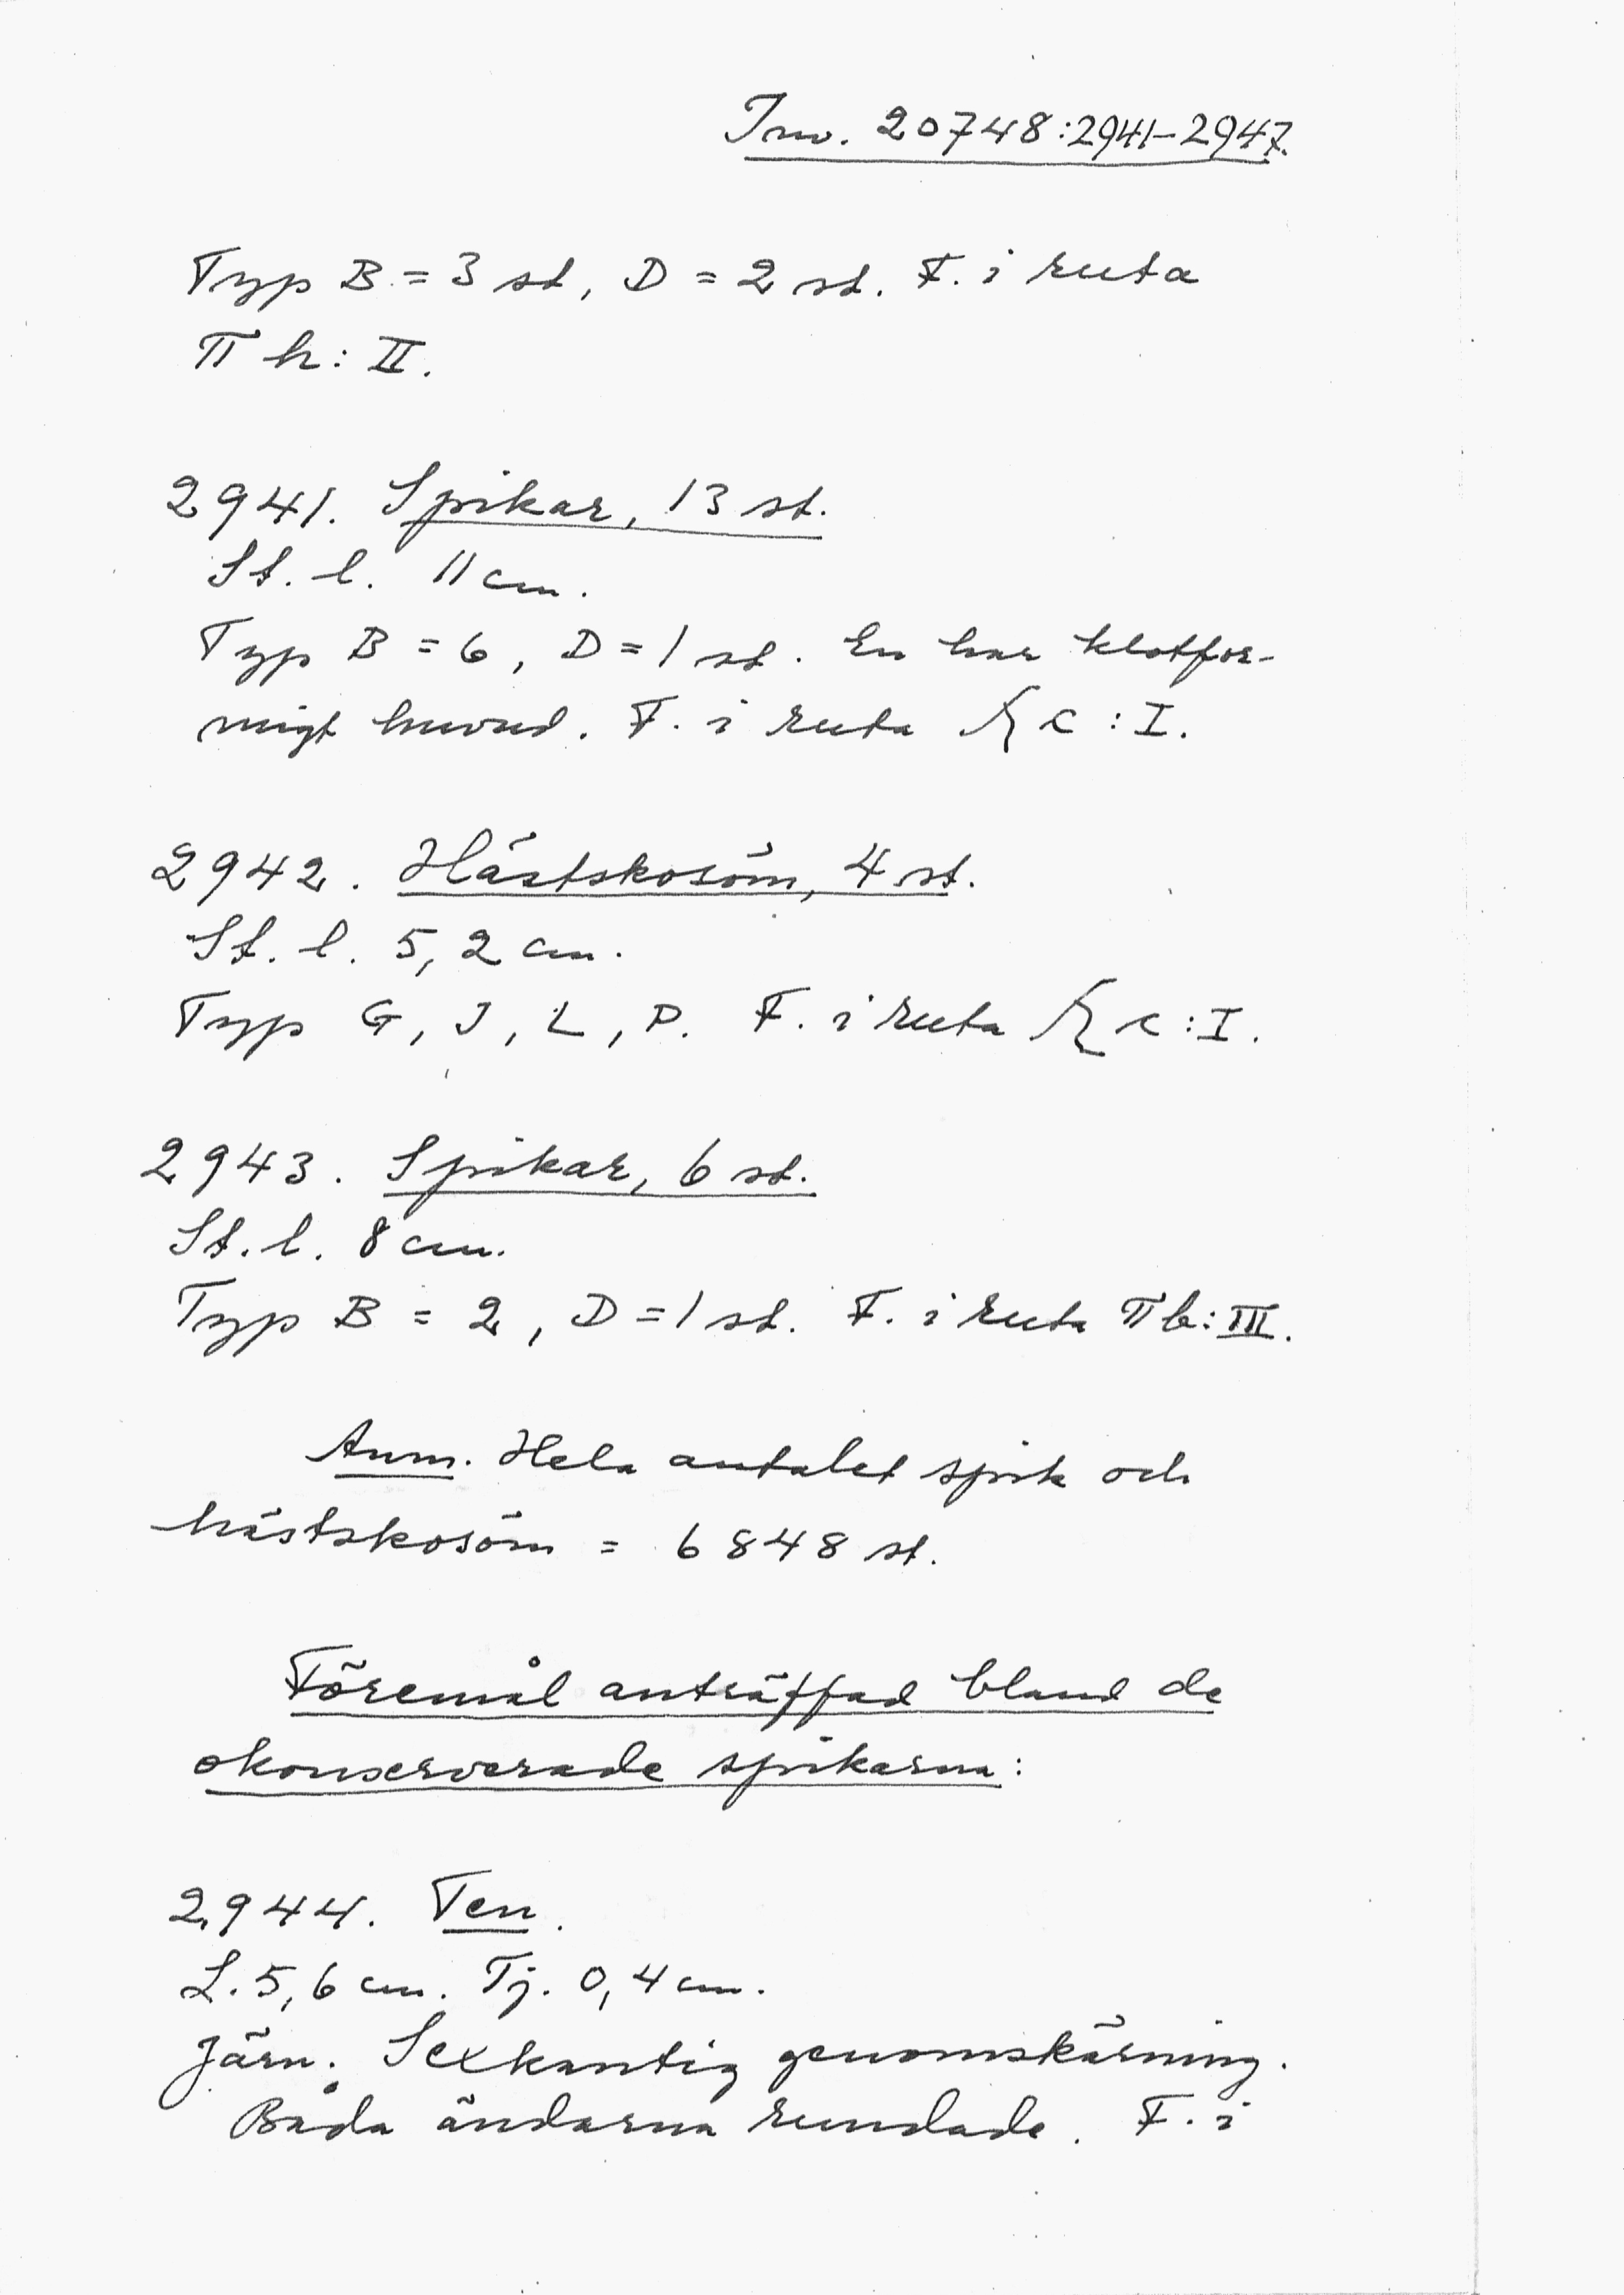 Inv. 20748:2941-2947.
Typ B = 3 st, D = 2 st. F. i ruta
Π h: II.
2941. Spikar, 13 st.
St. l. 11 cm.
Typ B = 6, D = 1 st. En har klotfor-
migt huvud. F. i ruta c : I.
2942. Hästskosöm, 4 st.
St. l. 5,2 cm.
Typ G, J, L, P. F. i ruta c : I.
2943. Spikar, 6 st.
St. l. 8 cm.
Typ B = 2, D = 1 st. F. i ruta Π b: III.
Anm. Hela antalet spik och
hästskosöm = 6848 st.
Föremål anträffad bland de
okonserverade spikarna:
2944. Ten.
L. 5,6 cm. Tj. 0,4 cm.
Järn. Sexkantig genomskärning.
Båda ändarna rundade. F. i